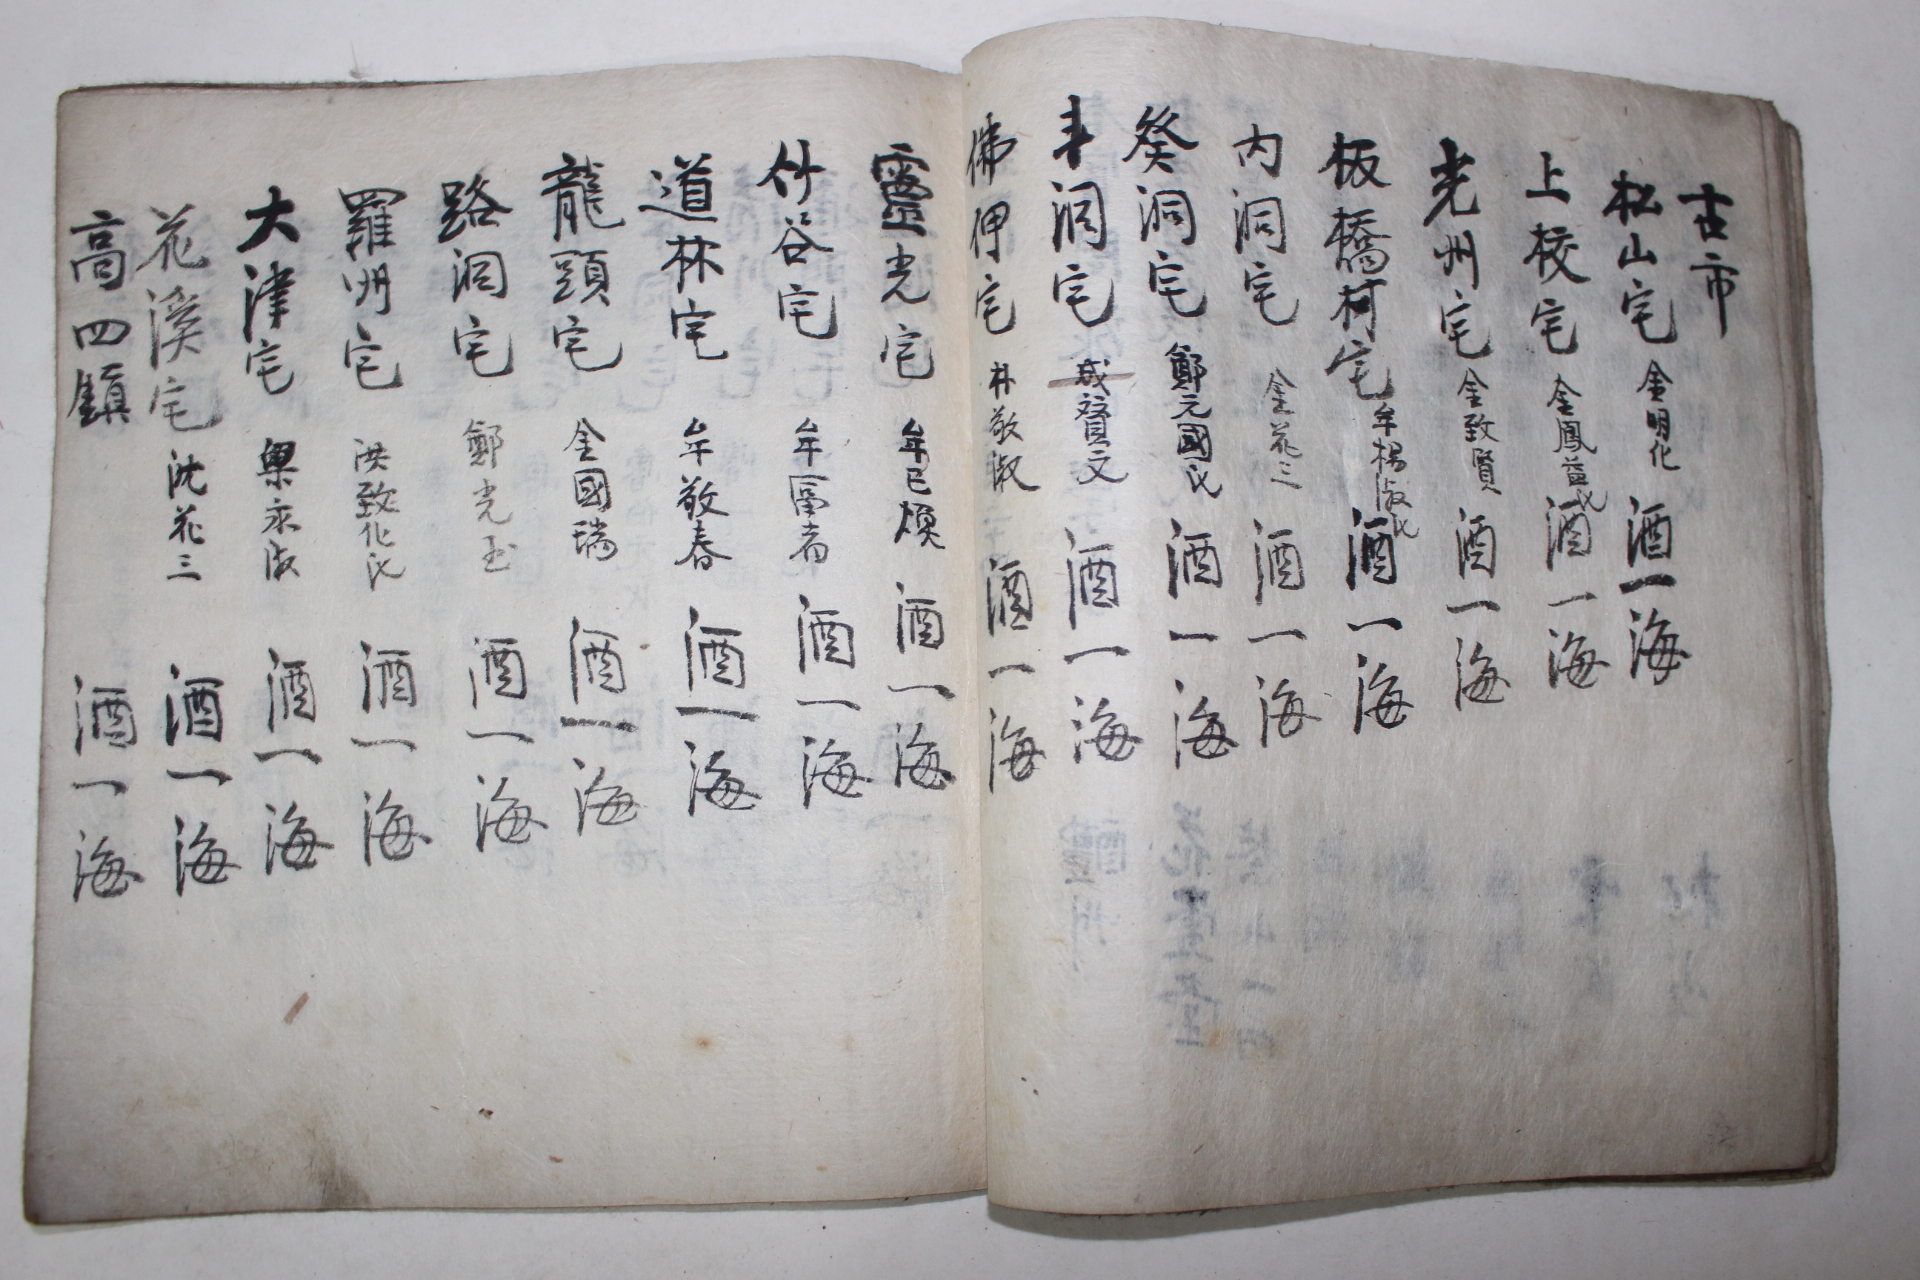 古市
松山宅 金明化 酒一海
上校宅 金鳳益氏 酒一海
光州宅 金致賢 酒一海
板橋村宅 牟楊淑氏 酒一海
內洞宅 金花三 酒一海
癸洞宅 鄭元國氏 酒一海
斗洞宅 成贊文 酒一海
佛岬宅 朴敬淑 酒一海
靈光宅 牟已煥 酒一海
竹谷宅 牟 酒一海
道林宅 牟敬春 酒一海
龍頭宅 金國瑞 酒一海
路洞宅 鄭光玉 酒一海
羅州宅 洪致化氏 酒一海
大津宅 梁永淑 酒一海
花溪宅 沈花三 酒一海
高四鎭 酒一海